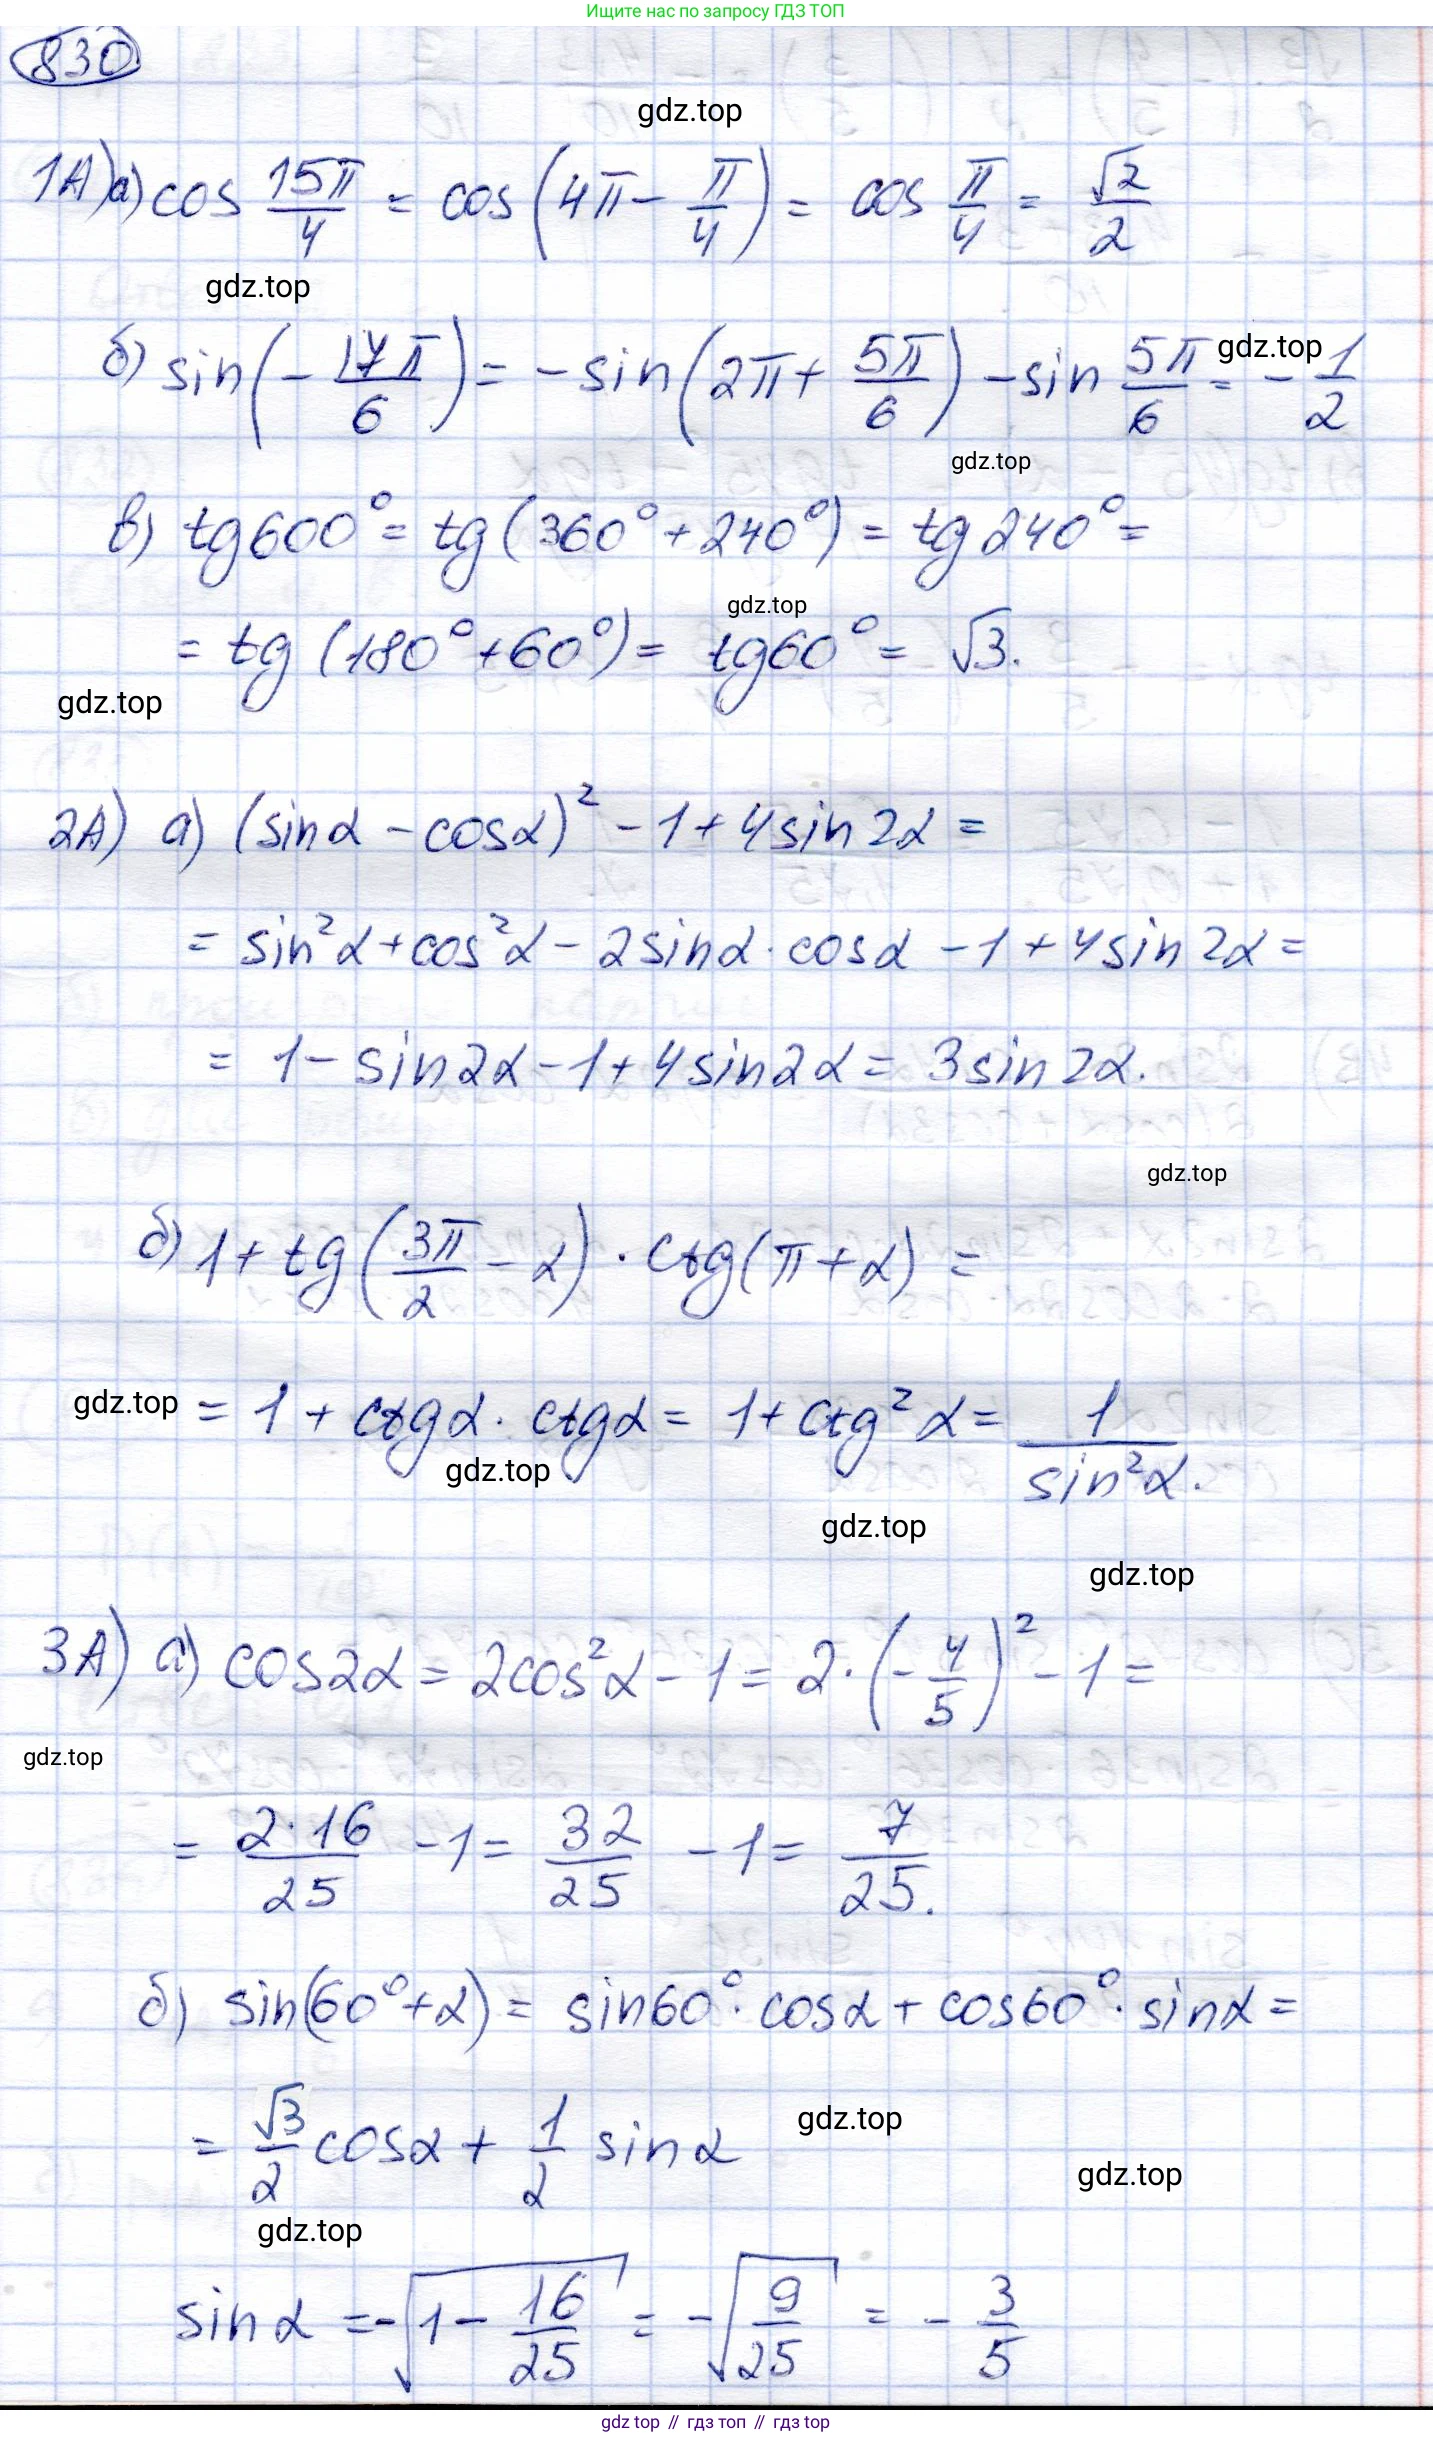 Ищите нас по запросу ГДЗ ТОП
830
gdz.top
1А) а) cos 15π/4 = cos (4π - π/4) = cos π/4 = √2/2
gdz.top
б) sin(- 17π/6) = - sin(2π + 5π/6) - sin 5π/6 = - 1/2
gdz.top
gdz.top
в) tg 600° = tg (360° + 240°) = tg 240° =
gdz.top
= tg (180° + 60°) = tg 60° = √3.
gdz.top
2А) а) (sin α - cos α)² - 1 + 4 sin 2α =
= sin² α + cos² α - 2 sin α · cos α - 1 + 4 sin 2α =
= 1 - sin 2α - 1 + 4 sin 2α = 3 sin 2α.
gdz.top
б) 1 + tg (3π/2 - α) · ctg (π + α) =
gdz.top
= 1 + ctg α · ctg α = 1 + ctg² α = 1/sin² α.
gdz.top
gdz.top
gdz.top
3А) а) cos 2α = 2 cos² α - 1 = 2 · (- 4/5)² - 1 =
gdz.top
= 2·16/25 - 1 = 32/25 - 1 = 7/25.
б) sin(60° + α) = sin 60° · cos α + cos 60° · sin α =
= √3/2 cos α + 1/2 sin α
gdz.top
gdz.top
gdz.top
sin α = -√(1 - 16/25) = -√(9/25) = - 3/5
gdz top // гдз топ // gdz top